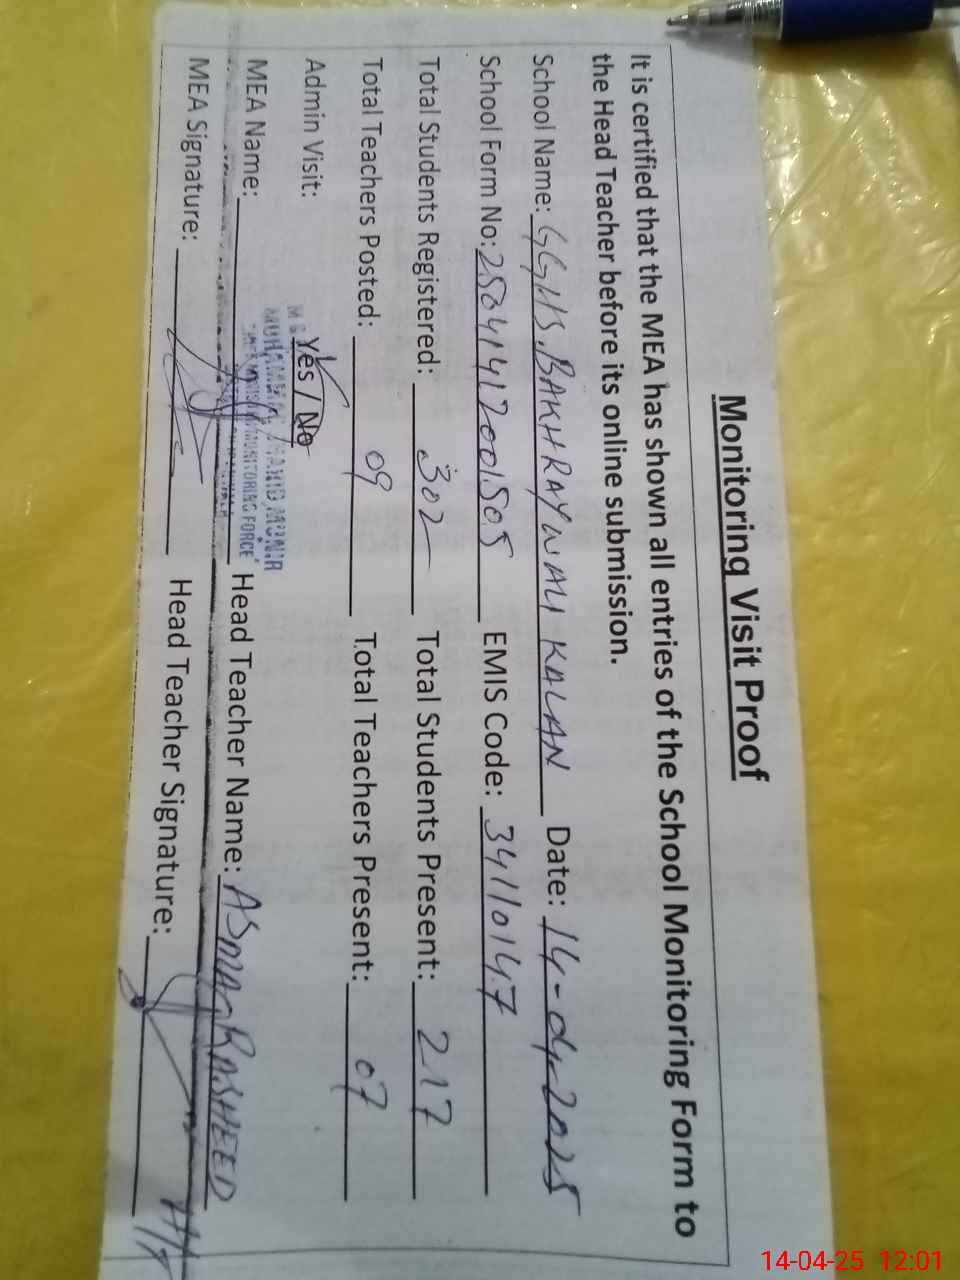 Monitoring Visit Proof
It is certified that the MEA has shown all entries of the School Monitoring Form to
the Head Teacher before its online submission.
School Name: GGHS.BAKHRAYWALI KALAN Date: 14-04-2025
School Form No: 2504141200150.5 EMIS Code: 34110147
Total Students Registered: 302 Total Students Present: 217
Total Teachers Posted: 09 Total Teachers Present: 07
Admin Visit: Yes / No
MEA Name: Head Teacher Name: ASMA RASHEED
MEA Signature: Head Teacher Signature:
14-04-25 12:01